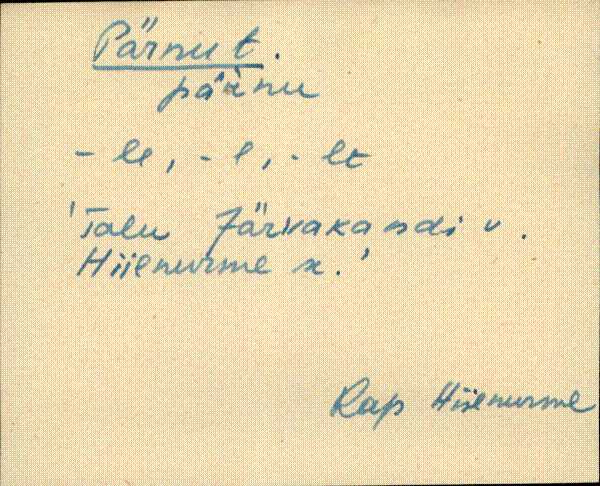 Pärnu t.
pärnu
- le, - l, - lt
'Talu Järvakandi v.
Hiienurme k.'
Rap Hiienurme